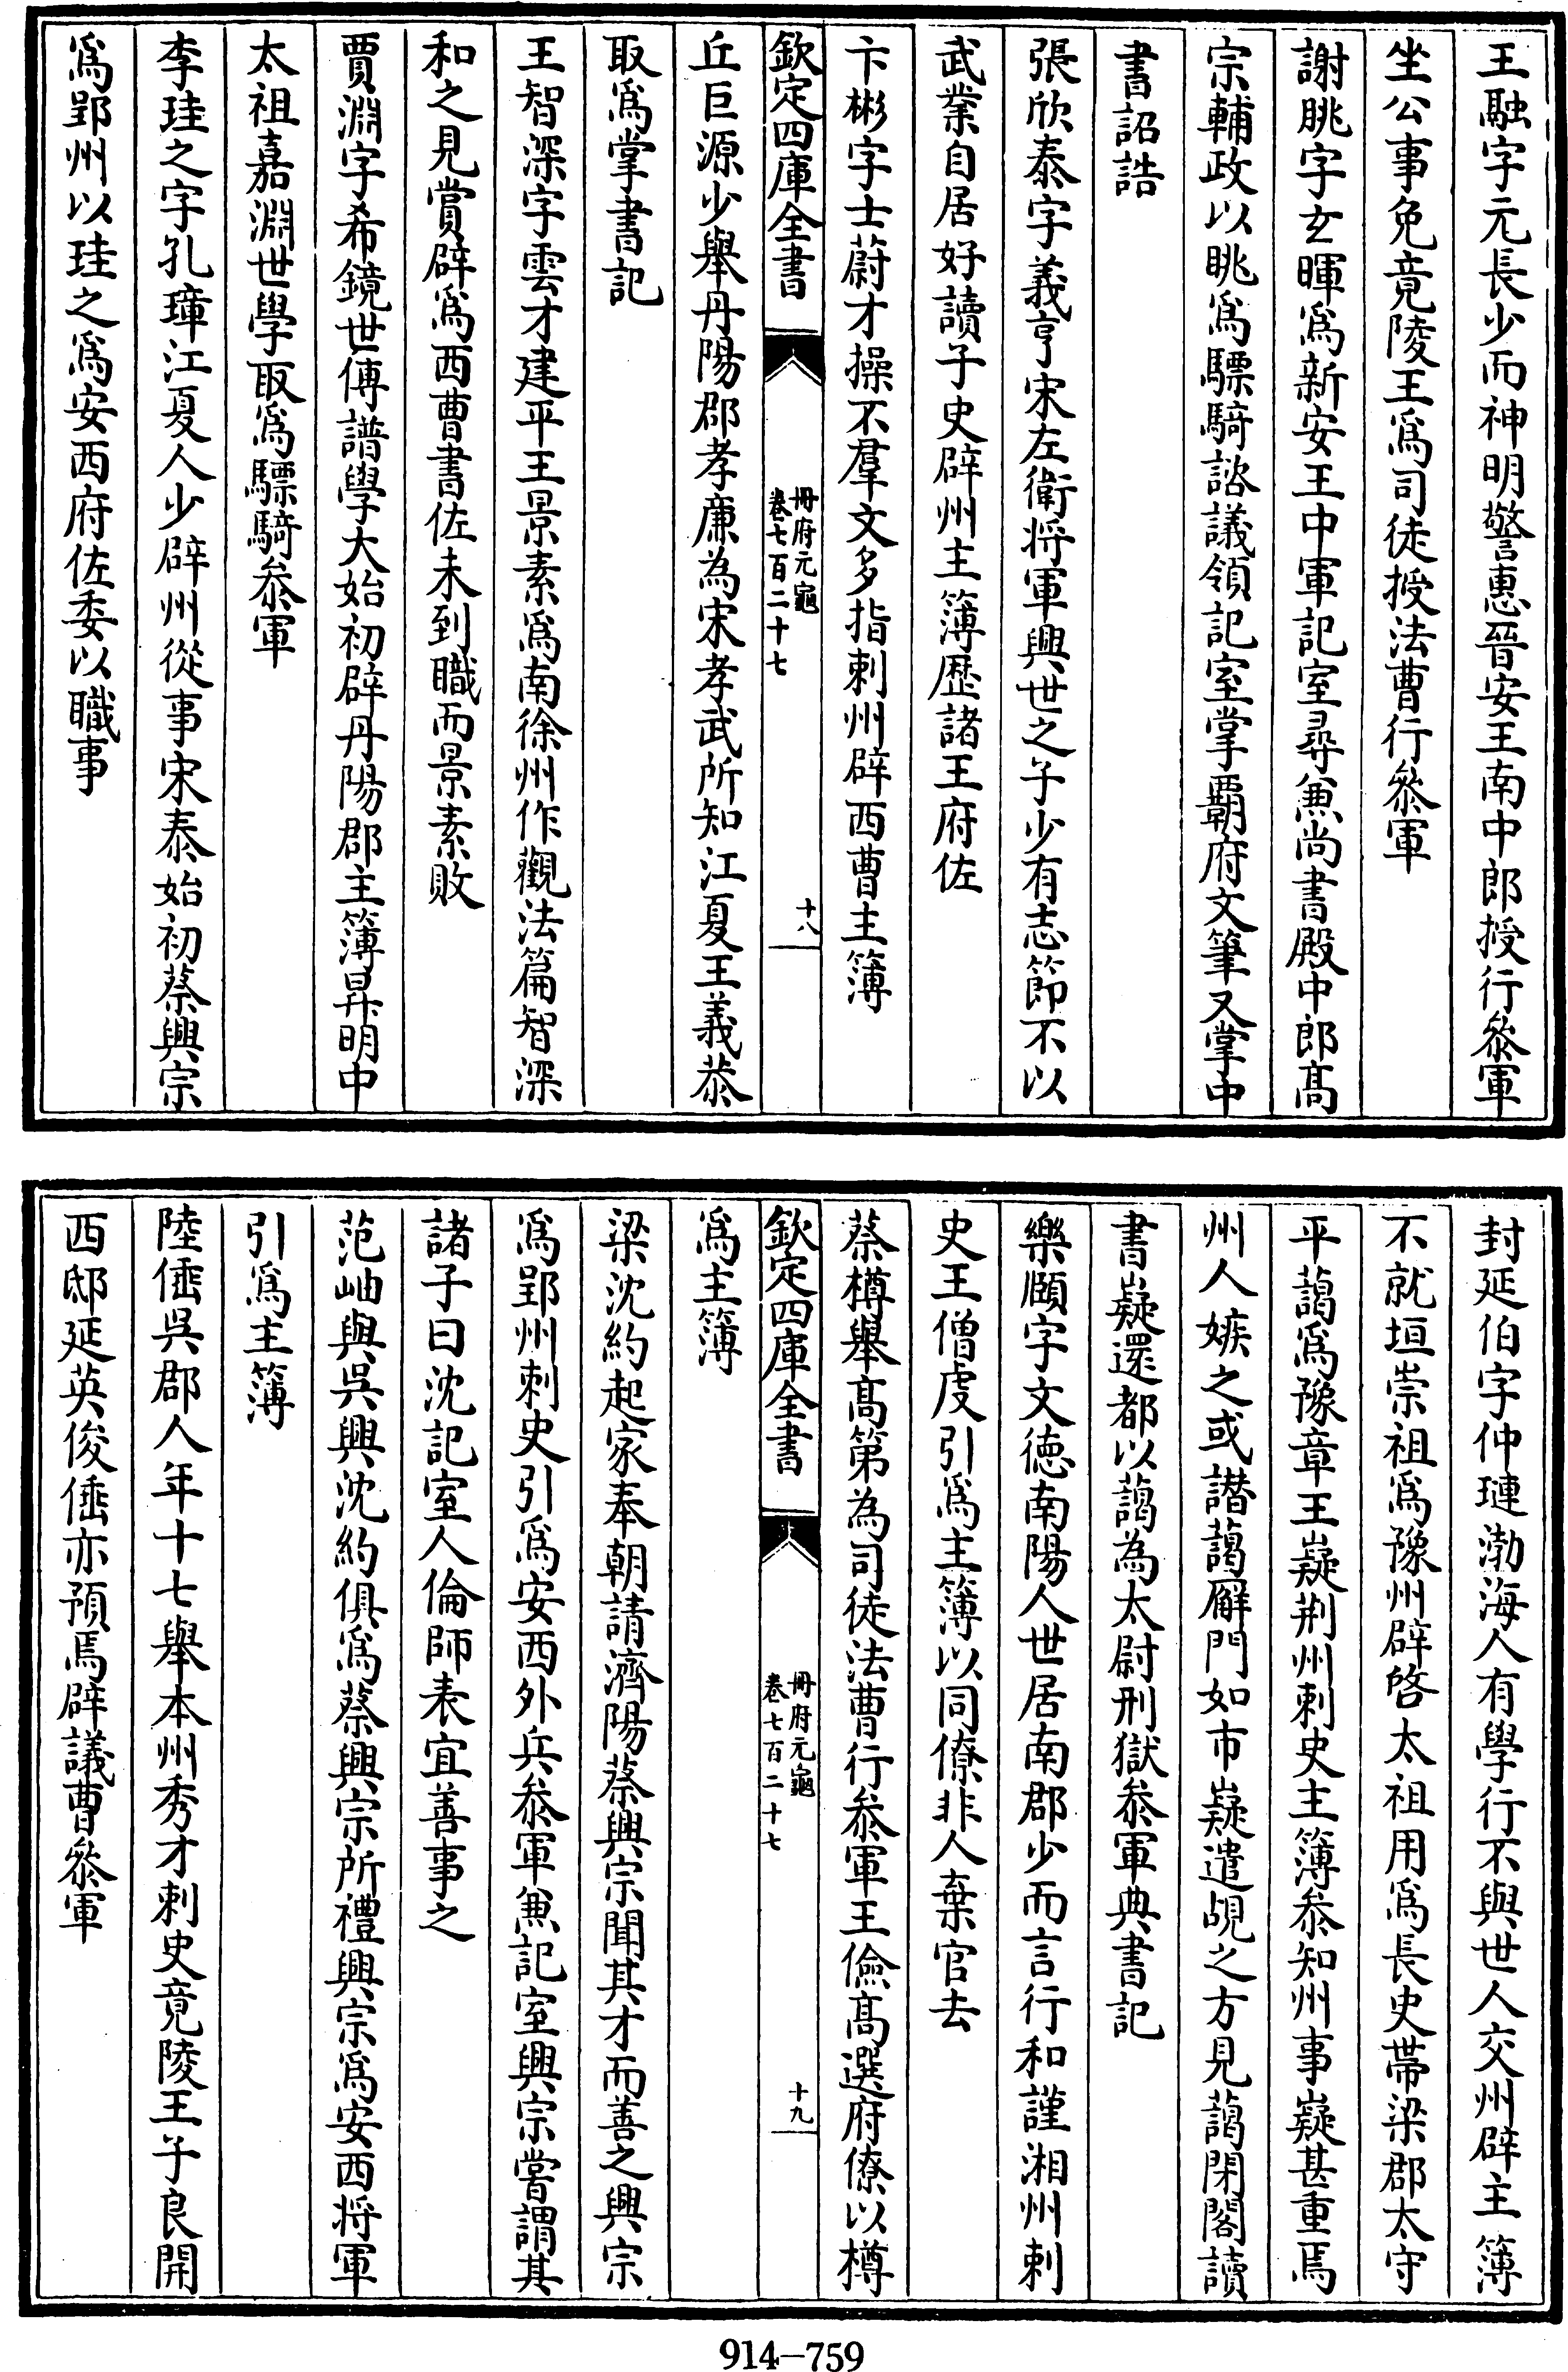 王融字元長少而神明警惠晉安王南中郎授行叅軍
坐公事免竟陵王爲司徒授法曹行叅軍
謝朓字玄暉爲新安王中軍記室尋兼尚書殿中郎髙
宗輔政以眺爲驃騎諮議領記室掌覇府文筆又掌中
書詔誥
張欣泰字義亨宋左衛将軍興世之子少有志節不以
武業自居好讀子史辟州主簿歴諸王府佐
卞彬字士蔚才操不羣文多指刺州辟西曹主簿
欽定四庫全書
冊府元龜
卷七百二十七
十八
丘巨源少舉丹陽郡孝廉為宋孝武所知江夏王義恭
取爲掌書記
王智深字雲才建平王景素爲南徐州作觀法篇智深
和之見賞辟爲西曹書佐未到職而景素敗
賈淵字希鏡世傳譜學大始初辟丹陽郡主簿昇明中
太祖嘉淵世學取爲驃騎叅軍
李珪之字孔璋江夏人少辟州從事宋泰始初蔡興宗
爲郢州以珪之爲安西府佐委以職事
封延伯字仲璉渤海人有學行不與世人交州辟主簿
不就垣崇祖爲豫州辟啓太祖用爲長史帶梁郡太守
平藹爲豫章王嶷荆州刺史主簿叅知州事嶷甚重焉
州人嫉之或譖藹廨門如市嶷遣覘之方見藹閉閣讀
書嶷還都以藹為太尉刑獄叅軍典書記
樂頤字文德南陽人世居南郡少而言行和謹湘州刺
史王僧虔引爲主簿以同僚非人棄官去
蔡樽舉髙第為司徒法曹行叅軍王儉髙選府僚以樽
爲主簿
欽定四庫全書
冊府元龜
卷七百二十七
十九
梁沈約起家奉朝請濟陽蔡興宗聞其才而善之興宗
爲郢州刺史引爲安西外兵叅軍兼記室興宗嘗謂其
諸子曰沈記室人倫師表宜善事之
范岫與吳興沈約俱爲蔡興宗所禮興宗爲安西将軍
引爲主簿
陸倕吳郡人年十七舉本州秀才刺史竟陵王子良開
西邸延英俊倕亦預焉辟議曹叅軍
914-759